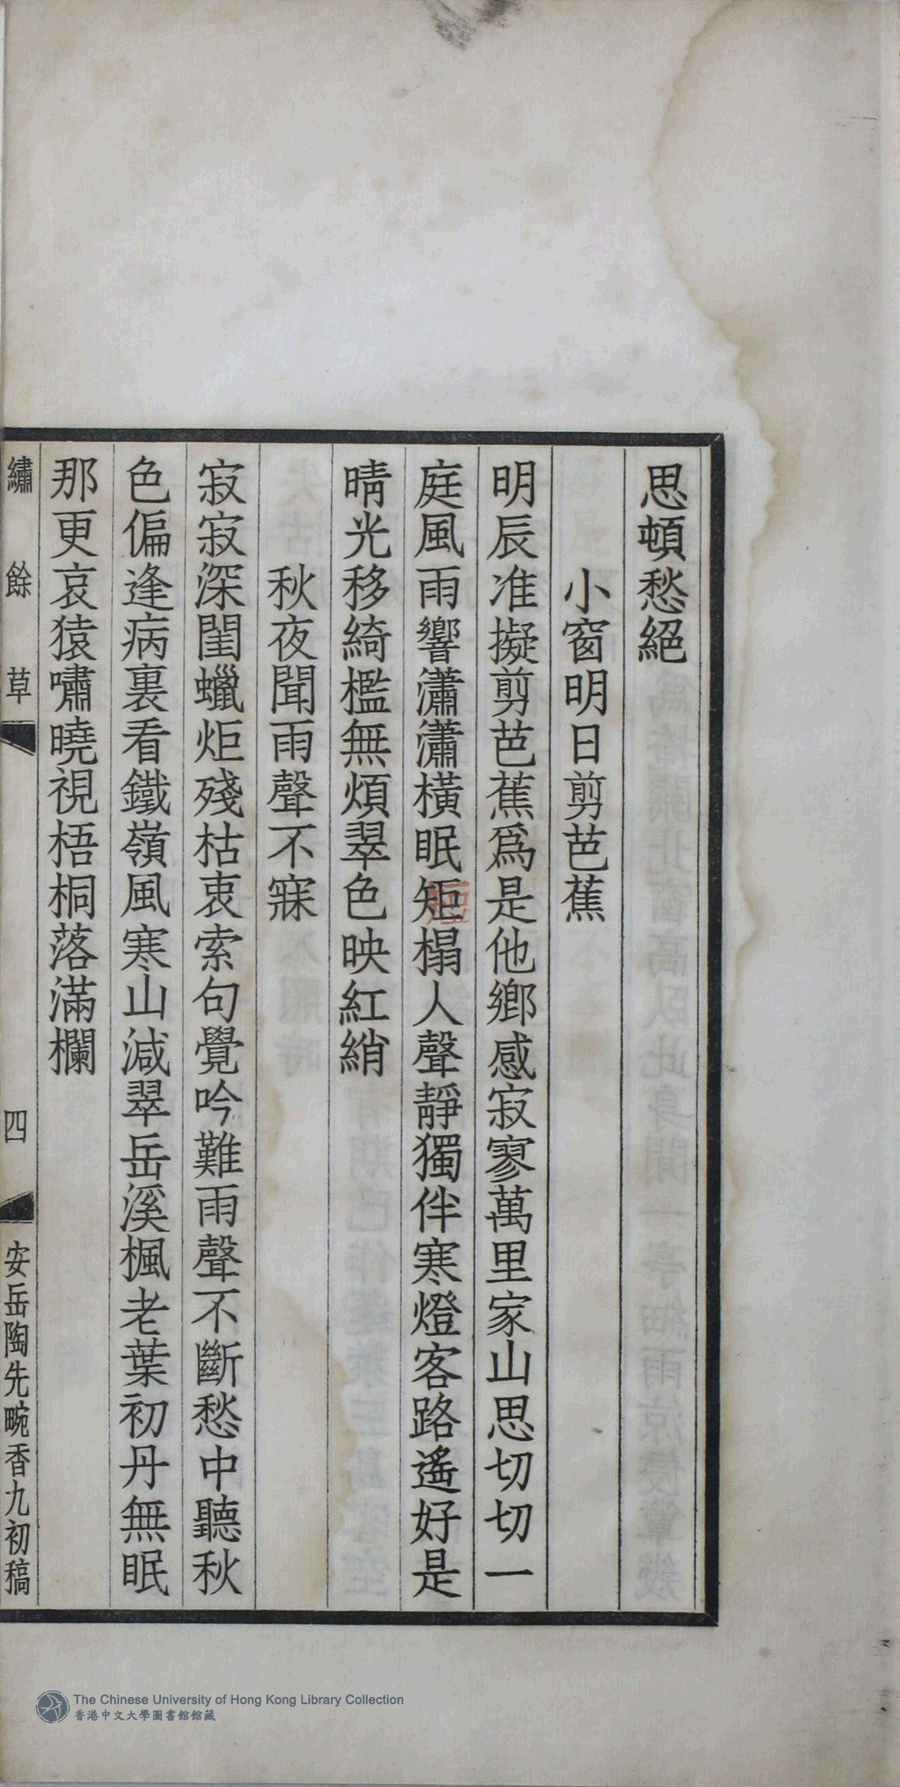 思頓愁絕
小窗明日剪芭蕉
明辰准擬剪芭蕉爲是他鄉感寂寥萬里家山思切切一
庭風雨響瀟瀟橫眠矩榻人聲靜獨伴寒燈客路遙好是
晴光移綺檻無煩翠色映紅綃
秋夜聞雨聲不寐
寂寂深閨蠟炬殘枯衷索句覺吟難雨聲不斷愁中聽秋
色偏逢病裏看鐵嶺風寒山減翠岳溪楓老葉初丹無眠
那更哀猿嘯曉視梧桐落滿欄
繡餘草
四
安岳陶先畹香九初稿
The Chinese University of Hong Kong Library Collection
香港中文大學圖書館館藏